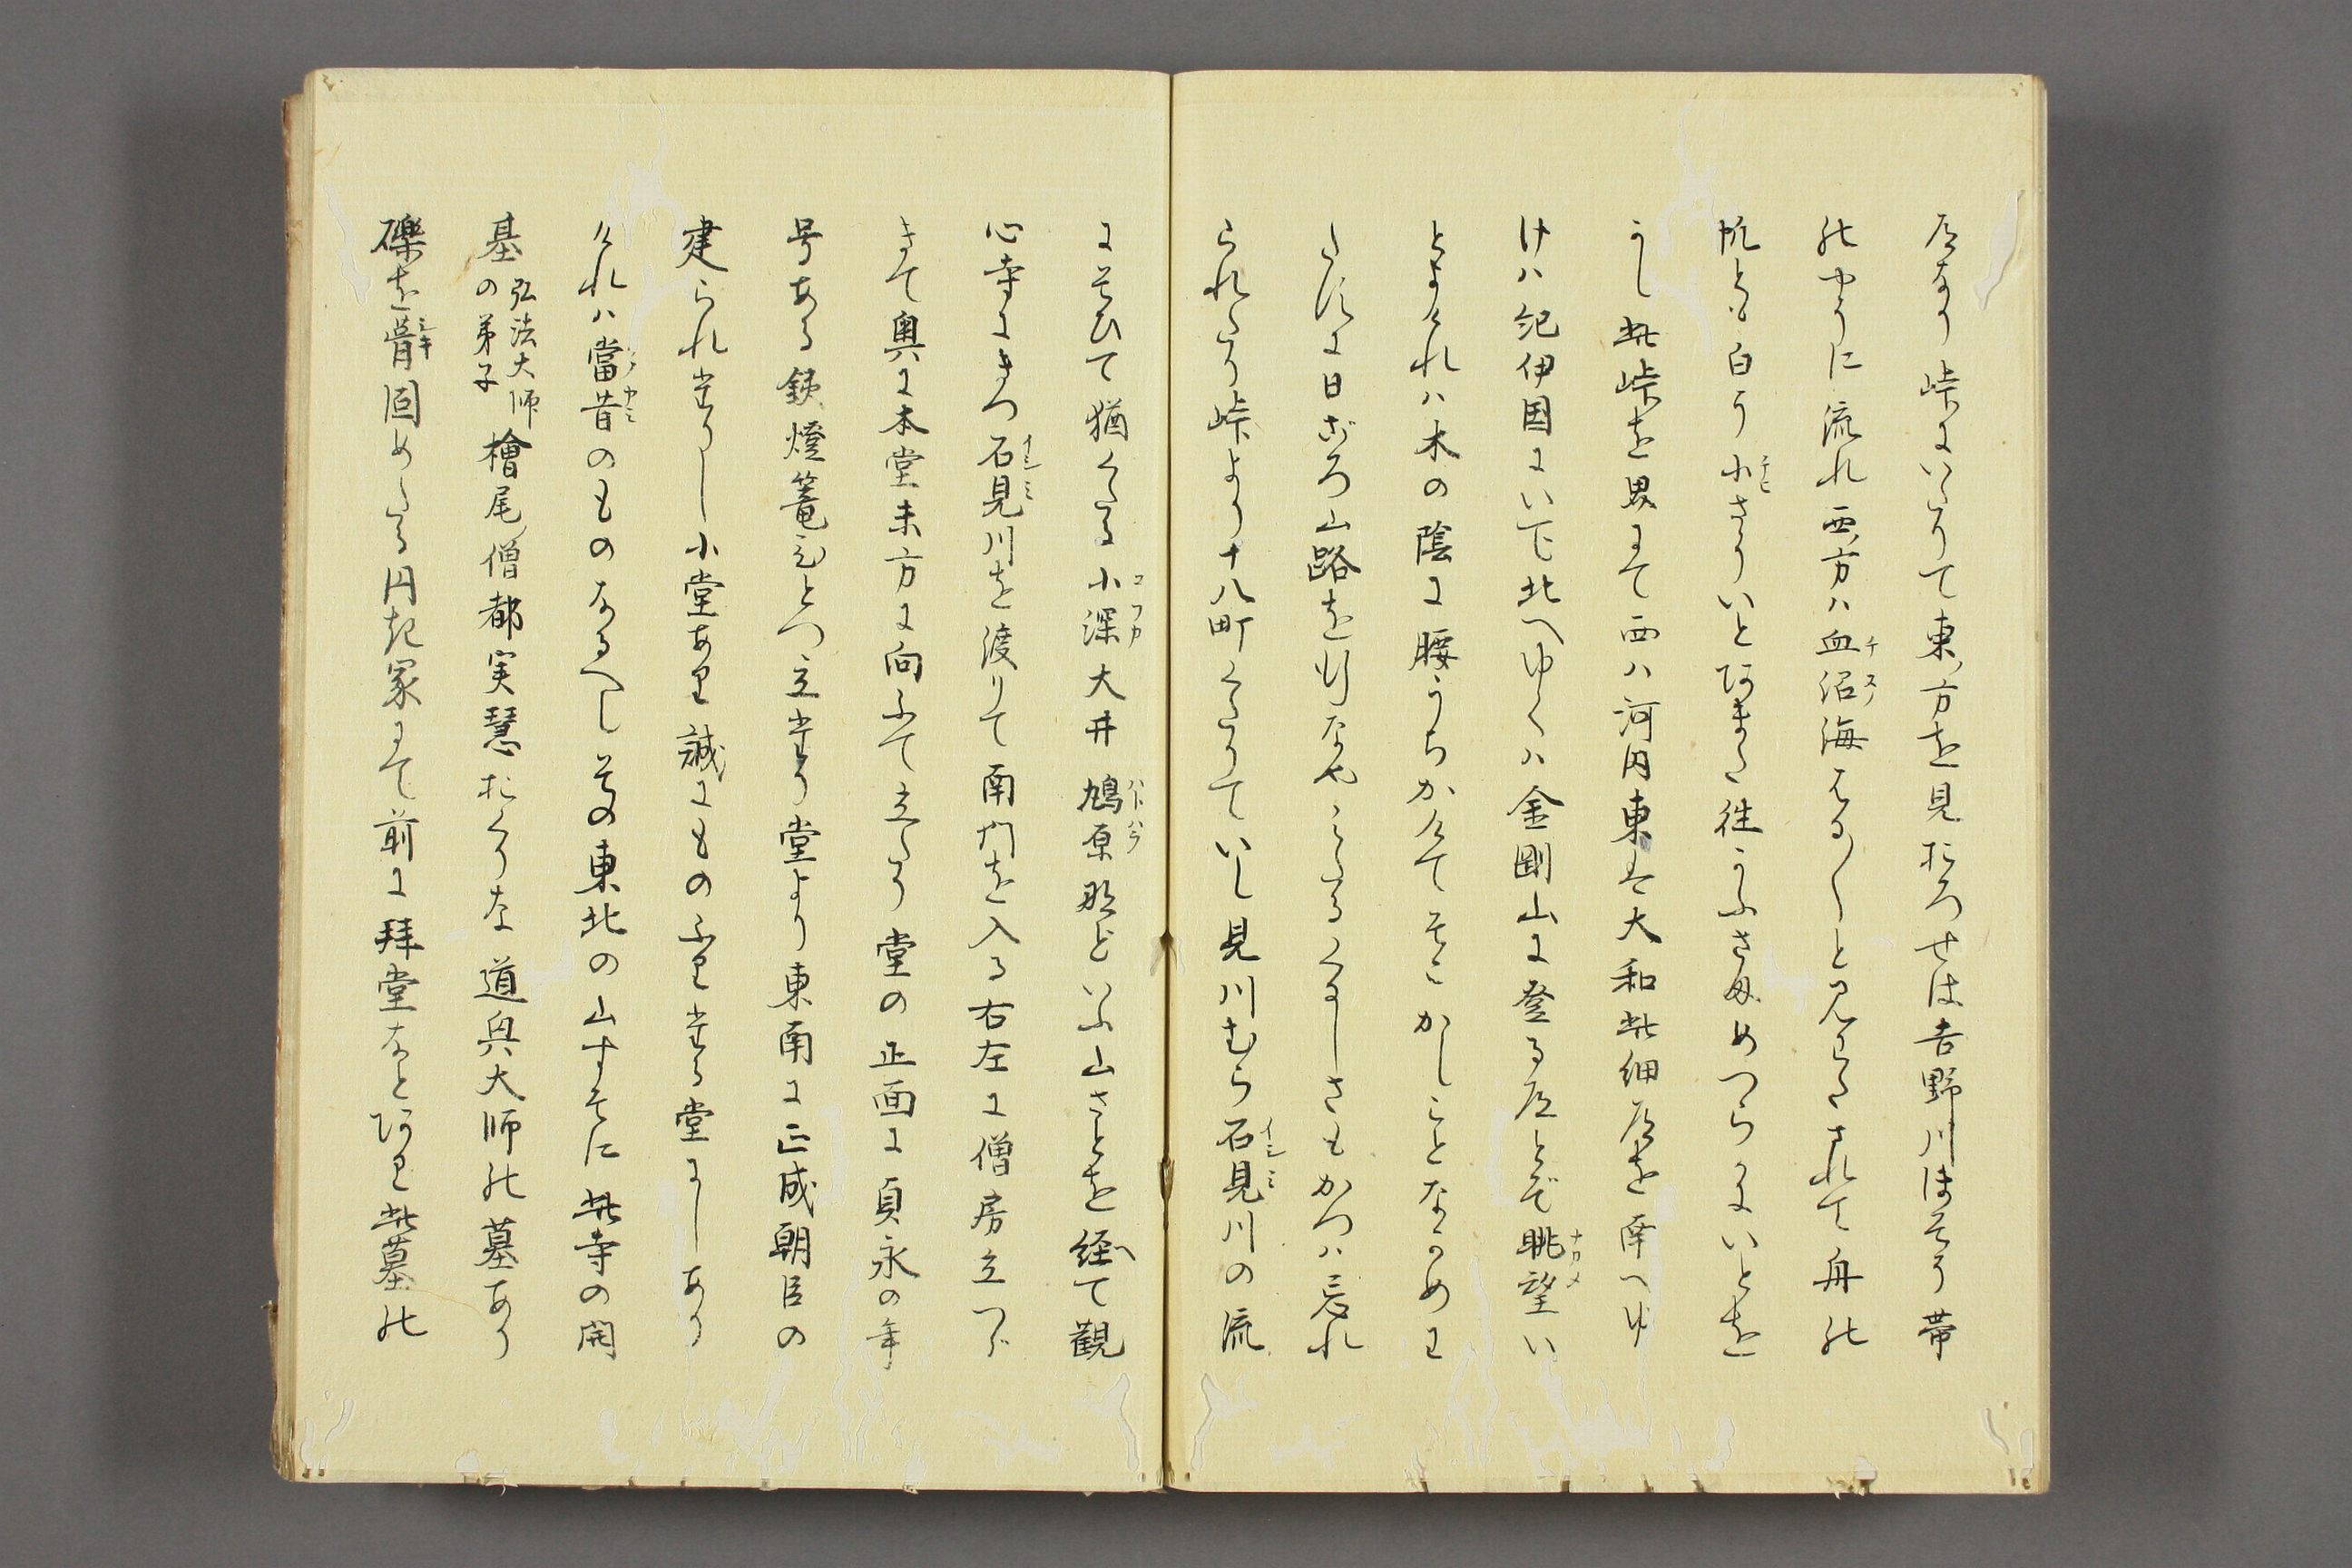 道なり峠にいたりて東ノ方を見おろせは吉野川ほそう帯
のやうに流れ西ノ方ハ血沼海はる〳〵と見わたされて舟の
帆とも白う小さういとあまた往かふさまめつらかにいとを
かし此峠を界にて西ハ河内東は大和此細道を南へゆ
けハ紀伊国にいて北へゆくハ金剛山に登る道とそ眺望い
とよけれハ木の陰に腰うちかけてそこかしことなかめわ
たすに日ごろ山路を行なやみたるくるしさもかつハ忘れ
られたり峠より十八町くたりていし見川むら石見川の流
にそひて猶くたる小深大井鳩原なといふ山さとを経て観
心寺にきつ石見川を渡りて南ノ門を入る右左に僧房立つゝ
きて奥に本堂未ノ方に向ふて立たり堂の正面に貞永の年
号ある鉄燈篭ひとつ立たり堂より東南に正成朝臣の
建られたりし小堂あり誠にものふりたる堂にしあり
けれハ當昔のものなるへし其東北の山すそに此寺の開
基弘法大師の弟子檜尾ノ僧都実慧おくりな道興大師の墓あり
礫を 固めたる円き冢にて前に拝堂なとあり此墓の